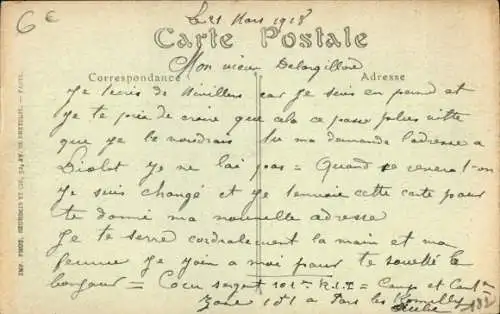 6€
Le 21 Mars 1918
Carte Postale
Correspondance
Adresse
Mon vieux Delargillère
Je t'écris de car je suis en perm et
je te prie de croire que cela se passe plus vite
que je ne voudrais tu me demande l'adresse a
Diolot je ne l'ai pas = Quand se reverat-on
je suis changé et je t'envoie cette carte pour
te donné ma nouvelle adresse
Je te serre cordialement la main et ma
femme se join a moi pour te souaité le
bonjour = sergent 101e R.I.T = Camp et
Zone 101 a les
IMP. PHOT. NEURDEIN ET CIE, 52, AV. DE BRETEUIL. — PARIS.